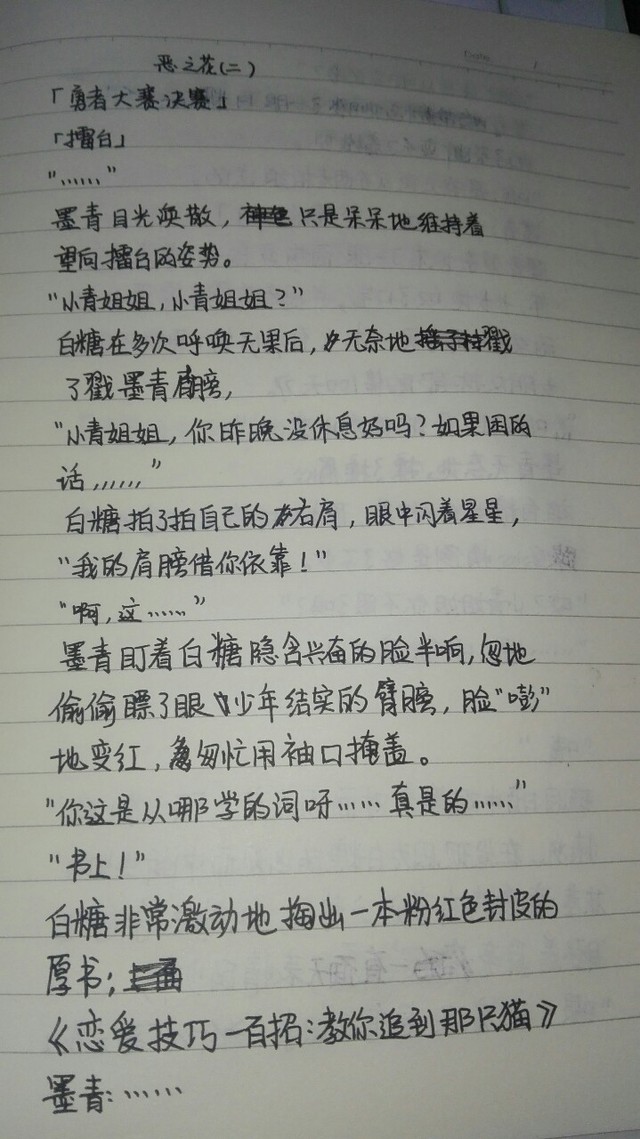 恶之花(二)
「勇者大赛决赛」
「擂台」
"……"
墨青目光涣散，只是呆呆地维持着
望向擂台的姿势。
"小青姐姐，小青姐姐？"
白糖在多次呼唤无果后，无奈地戳
了戳墨青肩膀，
"小青姐姐，你昨晚没休息好吗？如果困的
话……"
白糖拍了拍自己的右肩，眼中闪着星星，
"我的肩膀借你依靠！"
"啊，这……"
墨青盯着白糖隐含兴奋的脸半响，忽地
偷偷瞟了眼少年结实的臂膀，脸"嘭"
地变红，匆忙用袖口掩盖。
"你这是从哪学的词呀……真是的……"
"书上！"
白糖非常激动地掏出一本粉红色封皮的
厚书；
《恋爱技巧一百招：教你追到那只猫》
墨青：……